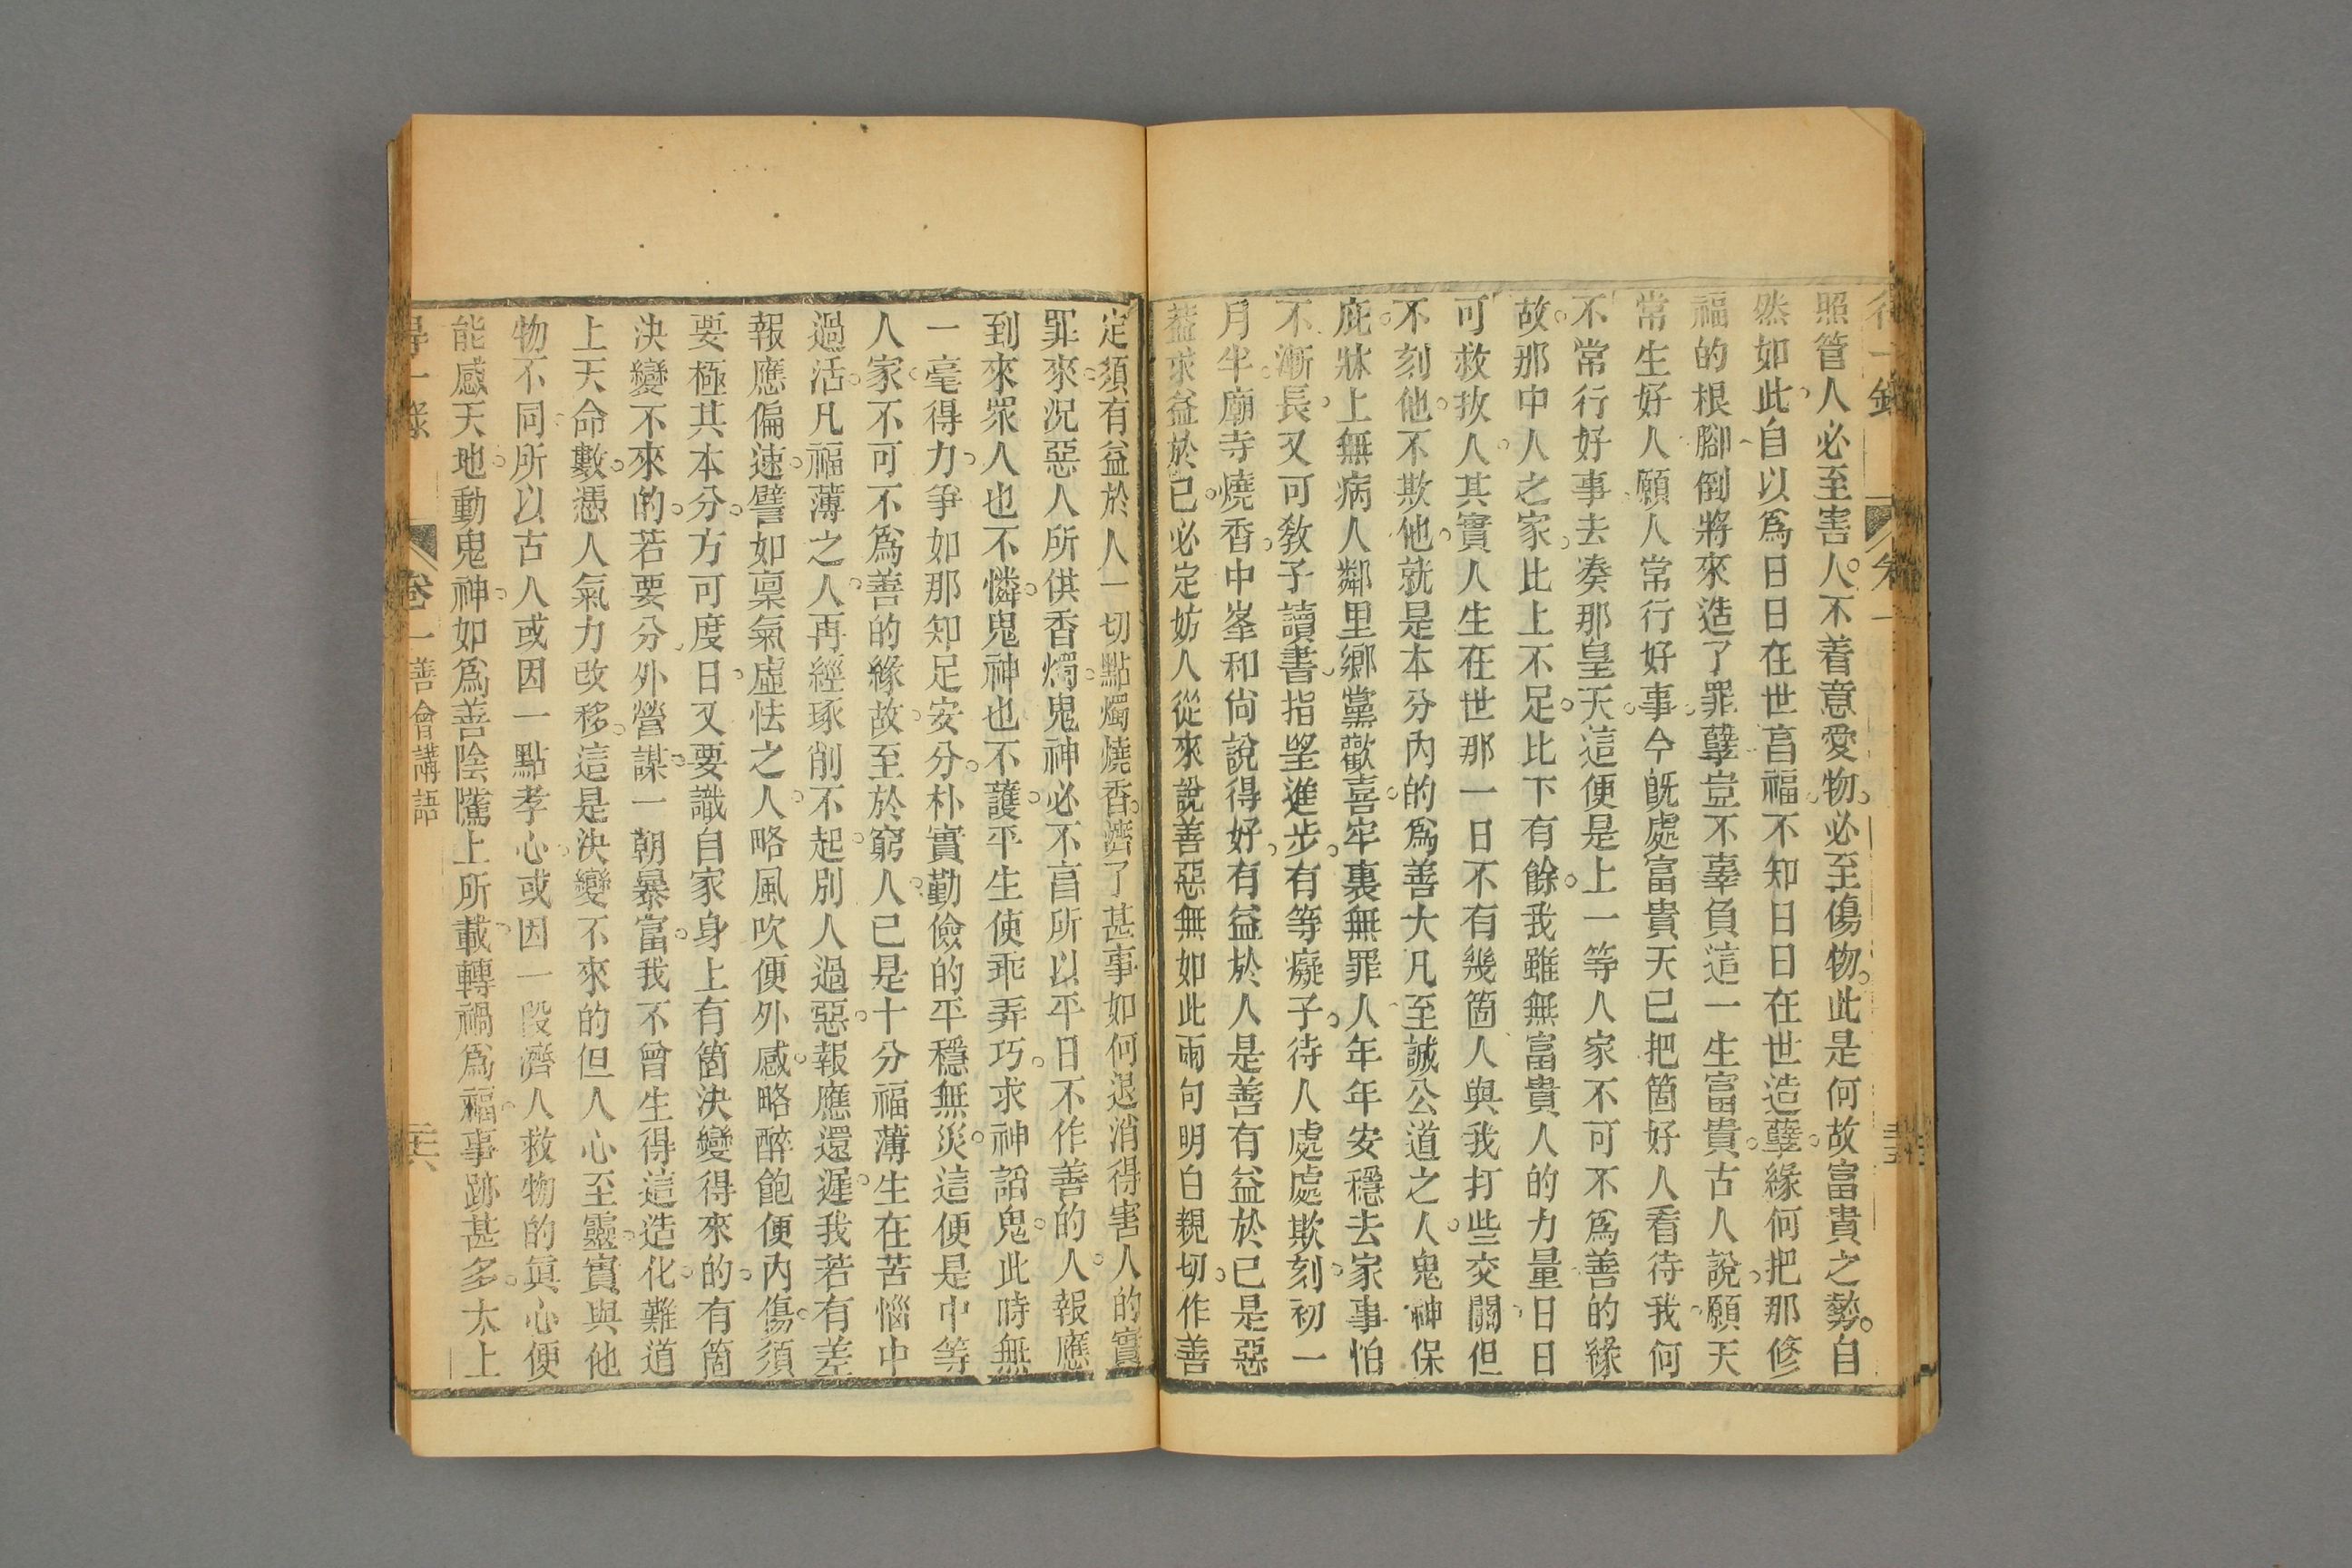 照管人必至害人不着意愛物必至傷物此是何故富貴之勢自
然如此自以爲日日在世亯福不知日日在世造孽緣何把那修
福的根腳倒將來造了罪孽豈不辜負這一生富貴古人說願天
常生好人願人常行好事今旣處富貴天已把箇好人看待我何
不常行好事去奏那皇天這便是上一等人家不可不爲善的緣
故那中人之家比上不足比下有餘我雖無富貴人的力量日日
可救救人其實人生在世那一日不有幾箇人與我打些交關但
不刻他不欺他就是本分內的爲善大凡至誠公道之人鬼神保
庇牀上無病人鄰里鄉黨歡喜牢裏無罪人年年安穩去家事怕
不漸長又可敎子讀書指望進步有等癡子待人處處欺刻初一
月半廟寺燒香中峯和尙說得好有益於人是善有益於己是惡
葢求益於己必定妨人從來說善惡無如此兩句明白親切作善
定須有益於人一切點燭燒香濟了甚事如何退消得害人的實
罪來況惡人所供香燭鬼神必不亯所以平日不作善的人報應
到來眾人也不憐鬼神也不護平生使乖弄巧求神謟鬼此時無
一毫得力爭如那知足安分朴實勤儉的平穩無災這便是中等
人家不可不爲善的緣故至於窮人已是十分福薄生在苦惱中
過活凡福薄之人再經琢削不起別人過惡報應還遲我若有差
報應偏速譬如稟氣虛怯之人略風吹便外感略醉飽便內傷須
要極其本分方可度日又要識自家身上有箇決變得來的有箇
決變不來的若要分外營謀一朝暴富我不曾生得這造化難道
上天命數憑人氣力改移這是決變不來的但人心至靈實與他
物不同所以古人或因一點孝心或因一段濟人救物的眞心便
能感天地動鬼神如爲善陰騭上所載轉禍爲福事跡甚多太上
得一錄 卷一 善會講語 三六